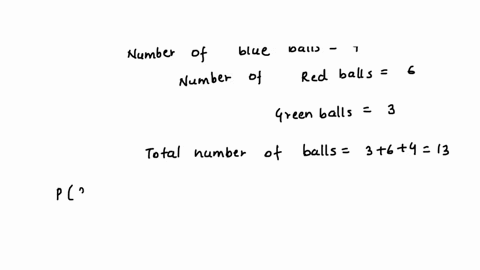 Number of blue balls =
Number of Red balls = 6
Green balls = 3
Total number of balls = 3+6+4 = 13
P(